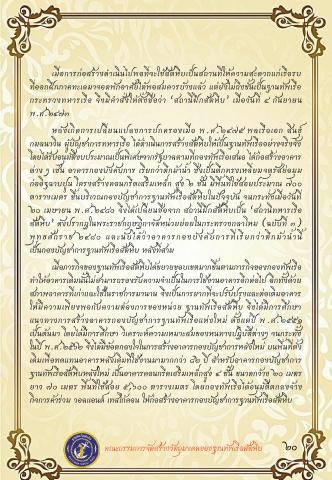 เมื่อการก่อสร้างดำเนินไปพอที่จะใช้สัตหีบเป็นสถานที่ให้ความสะดวกแก่เรือรบ
ที่ออกฝึกภาคทะเลมาจอดพักอาศัยได้พอสมควรบ้างแล้ว แต่ยังไม่ถึงขั้นเป็นฐานทัพเรือ
กระทรวงทหารเรือ จึงมีคำสั่งให้ตั้งชื่อว่า "สถานีฝึกสัตหีบ" เมื่อวันที่ ๔ กันยายน
พ.ศ.๒๔๗๓
หลังเกิดการเปลี่ยนแปลงการปกครองเมื่อ พ.ศ.๒๔๗๕ พลเรือเอก สินธุ์
กมลนาวิน ผู้บัญชาการทหารเรือ ได้ดำเนินการสร้างสัตหีบให้เป็นฐานทัพเรืออย่างจริงจัง
โดยได้รับอนุมัติงบประมาณเป็นพิเศษจากรัฐบาลตามที่กองทัพเรือเสนอ ได้ก่อสร้างอาคาร
ต่าง ๆ เช่น อาคารกองบังคับการ เรียกว่าตึกน้ำน่านี้ ซึ่งเป็นตึกทรงเหลี่ยม
โครงสร้างคอนกรีตเสริมเหล็ก สูง ๒ ชั้น มีพื้นที่ใช้สอยประมาณ ๗๐๐
ตารางเมตร ขึ้นบริเวณกองบัญชาการฐานทัพเรือสัตหีบในปัจจุบัน จนกระทั่งเมื่อวันที่
๒๐ เมษายน พ.ศ.๒๔๘๐ จึงได้เปลี่ยนชื่อจาก สถานีฝึกสัตหีบเป็น "สถานีทหารเรือ
สัตหีบ" ดังปรากฏในพระราชกฤษฎีกาจัดหน่วยย่อยในกระทรวงกลาโหม (ฉบับที่ ๓)
พุทธศักราช ๒๔๘๐ และนับได้ว่าอาคารกองบังคับการที่เรียกว่าตึกน้ำน่านี้
เป็นกองบัญชาการฐานทัพเรือสัตหีบ หลังที่สาม
เมื่อภารกิจของฐานทัพเรือสัตหีบได้ขยายขอบเขตมากขึ้นตามภารกิจของกองทัพเรือ
ทำให้อาคารเดิมนี้ไม่สามารถรองรับความจำเป็นในการใช้งานอาคารอีกต่อไป อีกทั้งด้วย
สภาพอาคารที่เก่าและใช้ในราชการมานาน จึงเป็นการยากที่จะปรับปรุงและต่อเติมอาคาร
ให้มีความเพียงพอกับความต้องการของหน่วย ฐานทัพเรือสัตหีบ จึงได้มีการศึกษา
แนวทางการสร้างอาคารกองบัญชาการฐานทัพเรือแห่งใหม่ ตั้งแต่ปี พ.ศ.๒๕๕๑
เป็นต้นมา โดยได้มีการศึกษา วิเคราะห์ความเหมาะสมของหนทางปฏิบัติต่างๆ จนกระทั่ง
ในปี พ.ศ.๒๕๕๒ จึงได้ข้อตกลงใจในการสร้างอาคารกองบัญชาการหลังใหม่ บนพื้นที่ตั้ง
เดิมเพื่อทดแทนอาคารหลังเดิมที่ใช้งานมามากกว่า ๗๐ ปี สำหรับอาคารกองบัญชาการ
ฐานทัพเรือสัตหีบหลังใหม่ เป็นอาคารคอนกรีตเสริมเหล็กสูง ๔ ชั้น ขนาดกว้าง ๒๐ เมตร
ยาว ๗๐ เมตร พื้นที่ใช้สอย ๕,๖๐๐ ตารางเมตร โดยกองทัพเรือได้อนุมัติตกลงจ้าง
กิจการค้าร่วม วอลแอนด์ เทสโก้คอน ให้ก่อสร้างอาคารกองบัญชาการฐานทัพเรือสัตหีบ
คณะกรรมการจัดสร้างวัตถุมงคลของฐานทัพเรือสัตหีบ
๒๐